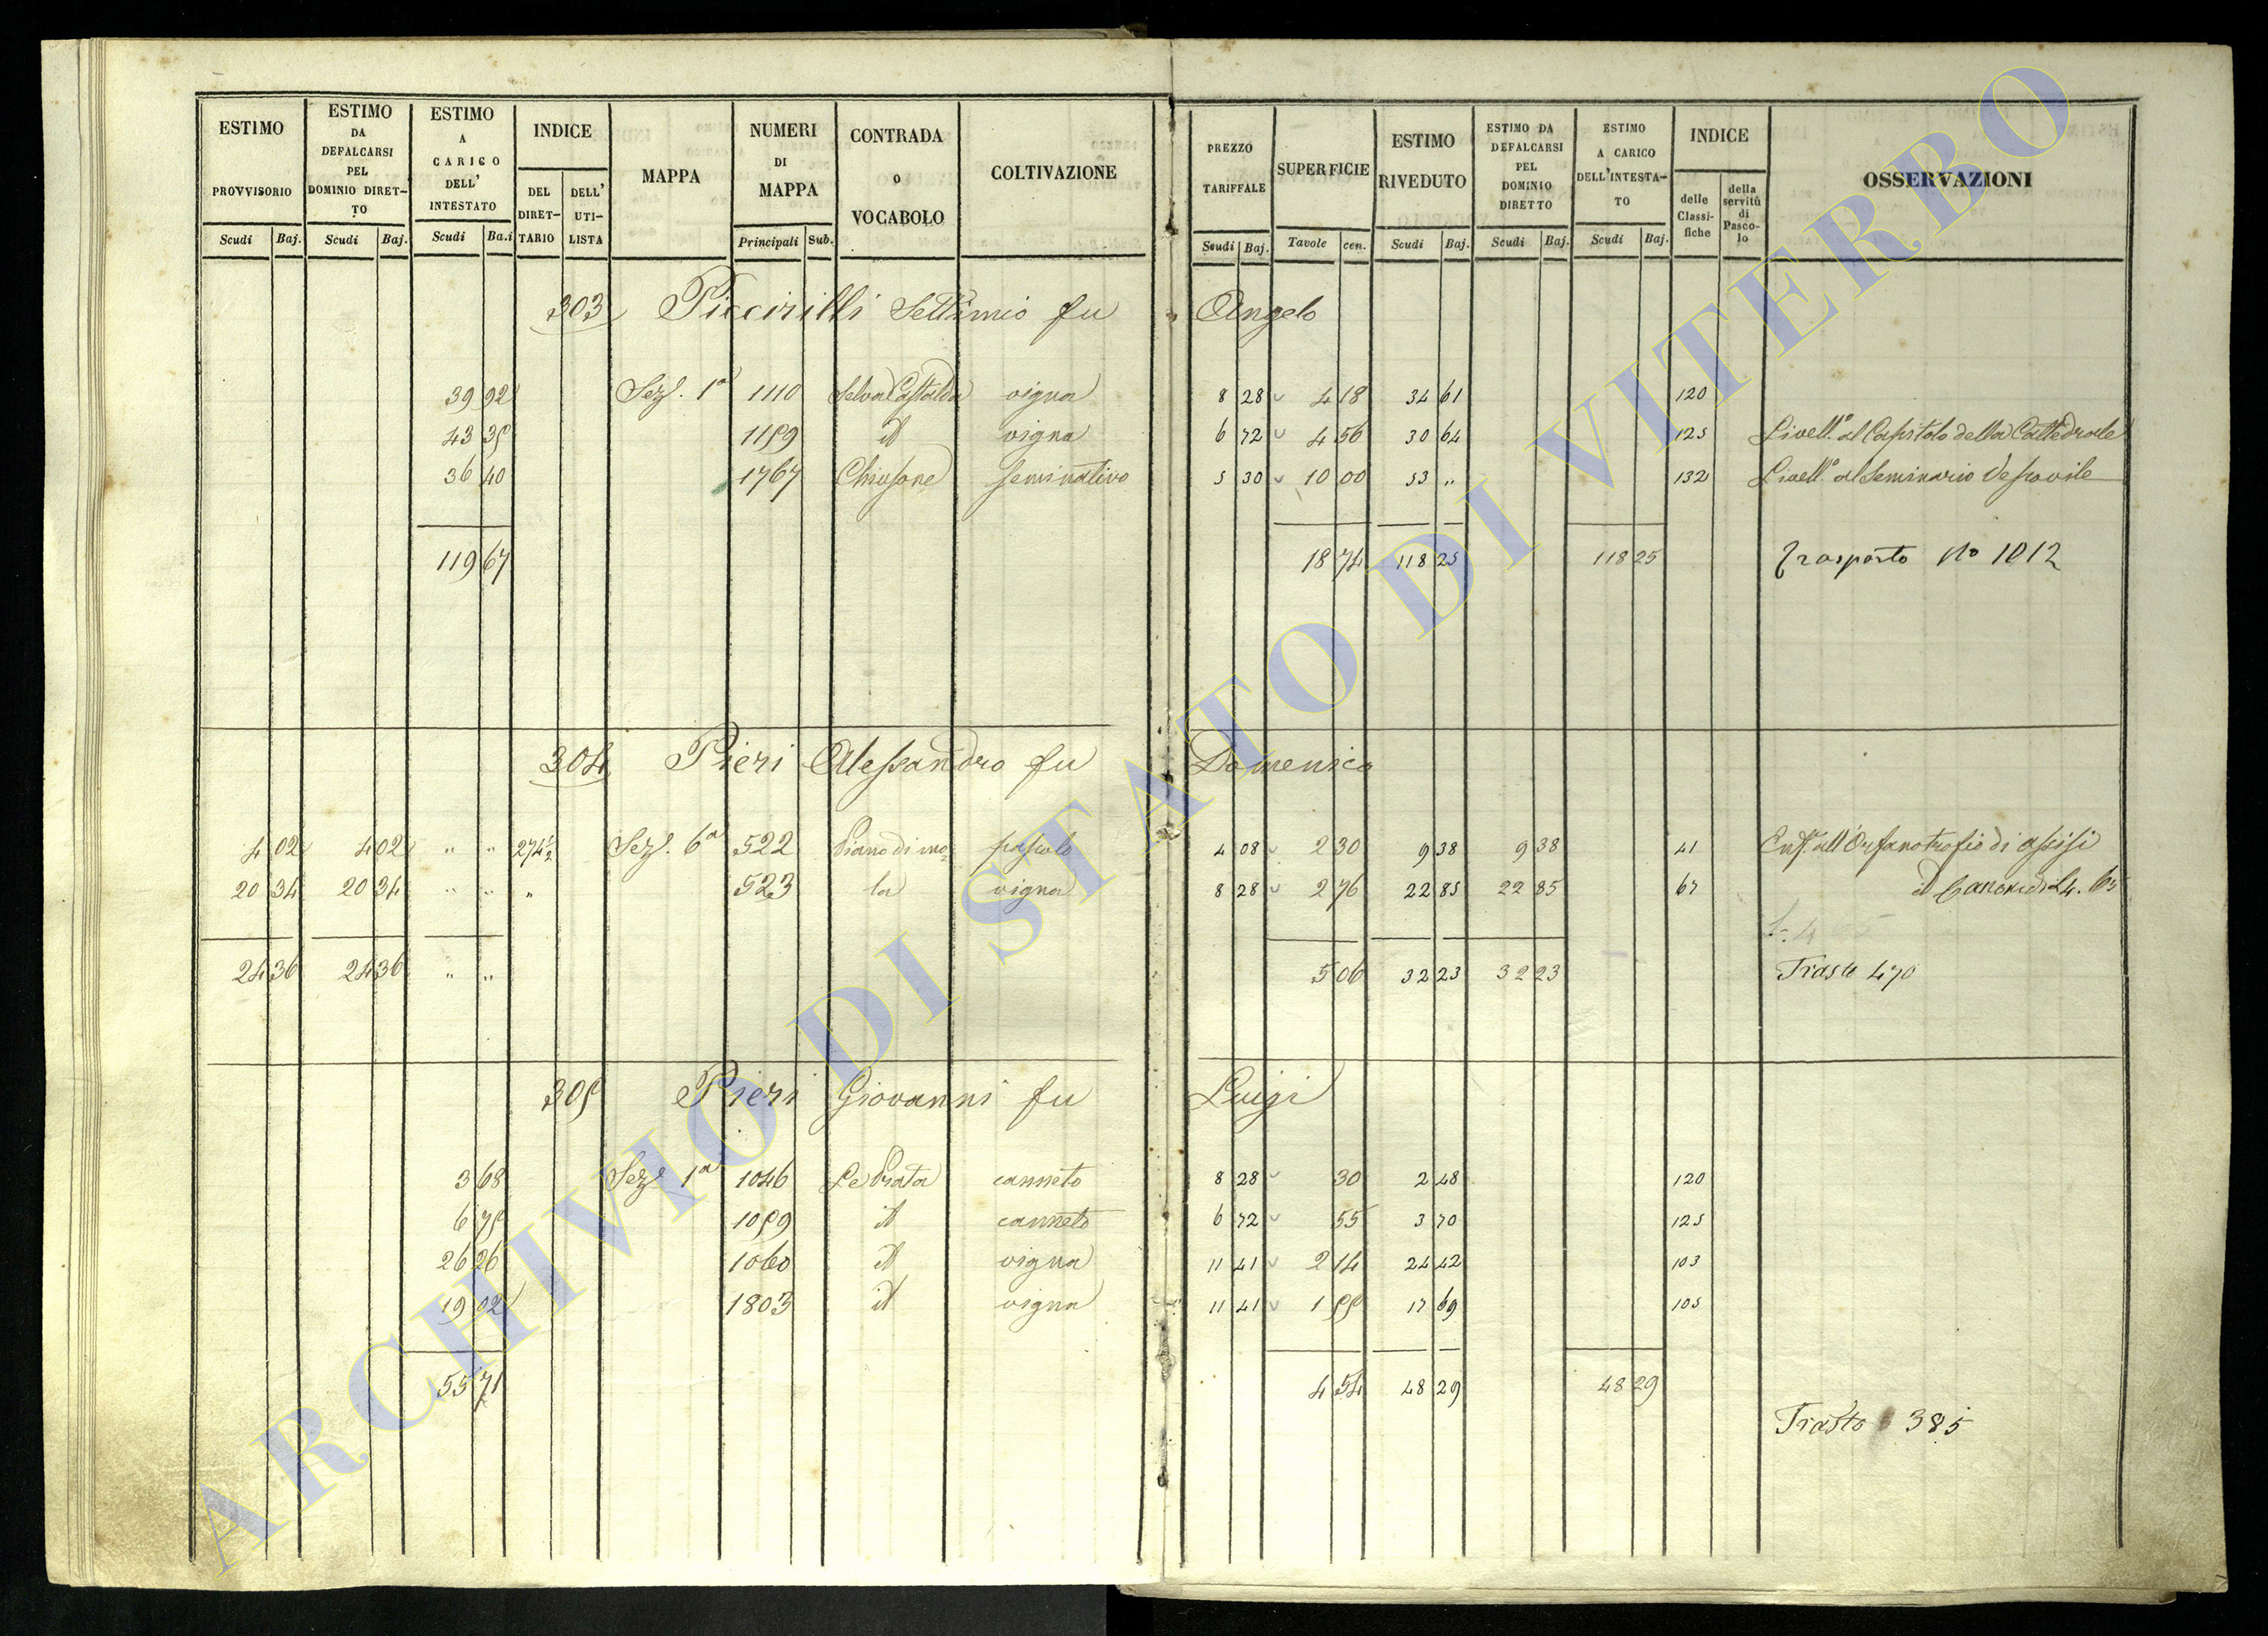 ESTIMO PROVVISORIO Scudi Baj.
ESTIMO DA DEFALCARSI PEL DOMINIO DIRETTO Scudi Baj.
ESTIMO A CARICO DELL' INTESTATO Scudi Ba.i
INDICE DEL DIRETTARIO DELL' UTILISTA
MAPPA
NUMERI DI MAPPA Principali Sub.
CONTRADA O VOCABOLO
COLTIVAZIONE
PREZZO TARIFFALE Scudi Baj.
SUPERFICIE Tavole cen.
ESTIMO RIVEDUTO Scudi Baj.
ESTIMO DA DEFALCARSI PEL DOMINIO DIRETTO Scudi Baj.
ESTIMO A CARICO DELL'INTESTATO Scudi Baj.
INDICE delle Classifiche della servitù di Pascolo
OSSERVAZIONI
303 Piccirilli Settimio fu Angelo
39 92 Sez. 1a 1110 Selva Castalda vigna 8 28 4 18 34 61 120
43 35 1159 id vigna 6 72 4 56 30 64 125 Livello. al Capitolo della Cattedrale
36 40 1767 Chiusone seminativo 5 30 10 00 53 " 132 Livello. al Seminario Vescovile
119 67 18 74 118 25 118 25 Trasporto No 1012
304 Pieri Alessandro fu Domenico
4 02 4 02 " " 274½ Sez. 6a 522 Piano di mo= pascolo 4 08 2 30 9 38 9 38 41 Enfa. all'Orfanotrofio di assisi
20 34 20 34 " " " 523 la vigna 8 28 2 76 22 85 22 85 67 id Canone di L4. 65
24 36 24 36 " " 5 06 32 23 32 23 Trasto 470
305 Pieri Giovanni fu Luigi
3 68 Sez 1a 1046 Le Prata canneto 8 28 30 2 48 120
6 75 1059 id canneto 6 72 55 3 70 125
26 26 1060 id vigna 11 41 2 14 24 42 103
19 02 1803 id vigna 11 41 1 55 17 69 105
55 71 4 54 48 29 48 29
Trasto 385
ARCHIVIO DI STATO DI VITERBO